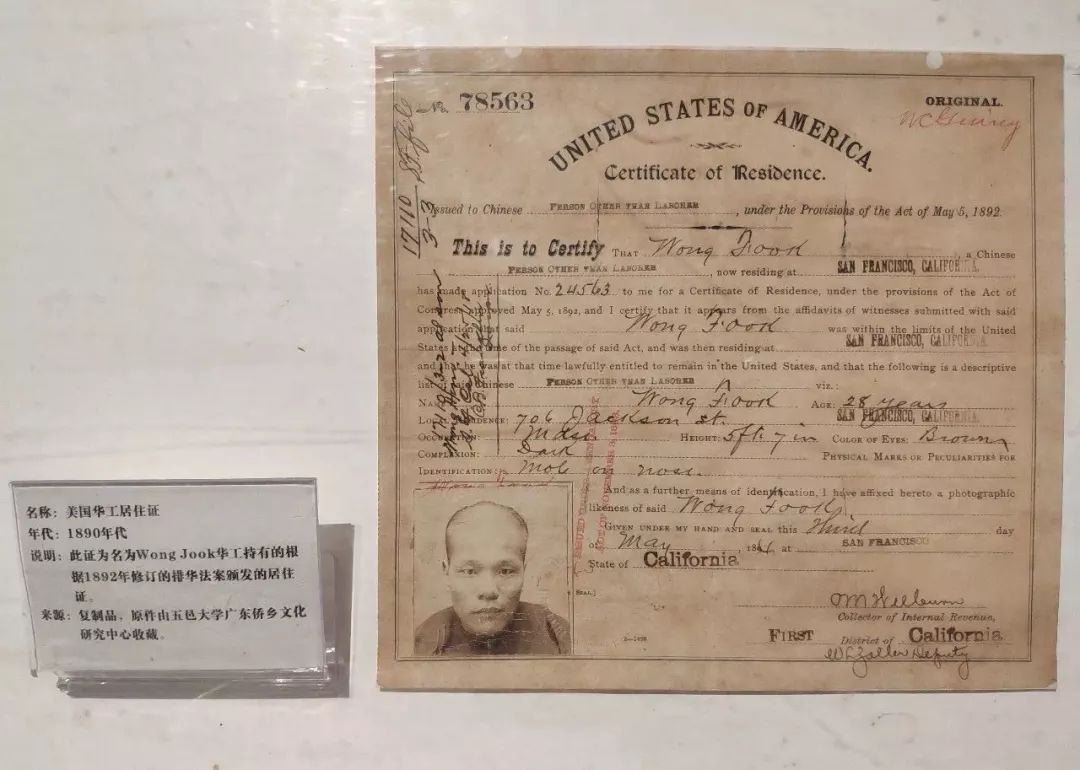 名称：美国华工居住证
年代：1890年代
说明：此证为名为Wong Jook华工持有的根
据1892年修订的排华法案颁发的居住
证。
来源：复制品，原件由五邑大学广东侨乡文化
研究中心收藏。
No. 78563
ORIGINAL.
UNITED STATES OF AMERICA.
Certificate of Residence.
Issued to Chinese PERSON OTHER THAN LABORER, under the Provisions of the Act of May 5, 1892.
This is to Certify THAT Wong Fook, a Chinese
PERSON OTHER THAN LABORER, now residing at SAN FRANCISCO, CALIFORNIA.
has made application No. 24563 to me for a Certificate of Residence, under the provisions of the Act of
Congress approved May 5, 1892, and I certify that it appears from the affidavits of witnesses submitted with said
application that said Wong Fook was within the limits of the United
States at the time of the passage of said Act, and was then residing at SAN FRANCISCO, CALIFORNIA.
and that he was at that time lawfully entitled to remain in the United States, and that the following is a descriptive
list of said Chinese PERSON OTHER THAN LABORER viz.:
NAME: Wong Fook AGE: 28 years
LOCAL RESIDENCE: 706 Jackson st. SAN FRANCISCO, CALIFORNIA.
OCCUPATION: Mdse HEIGHT: 5ft. 7 in COLOR OF EYES: Brown
COMPLEXION: Dark PHYSICAL MARKS OR PECULIARITIES FOR
IDENTIFICATION: Mole on nose.
And as a further means of identification, I have affixed hereto a photographic
likeness of said Wong Fook.
GIVEN UNDER MY HAND AND SEAL this Third day
of May, at SAN FRANCISCO
State of California
[SEAL.]
OM Welburn
Collector of Internal Revenue,
FIRST District of California
Deputy
17110
3-3